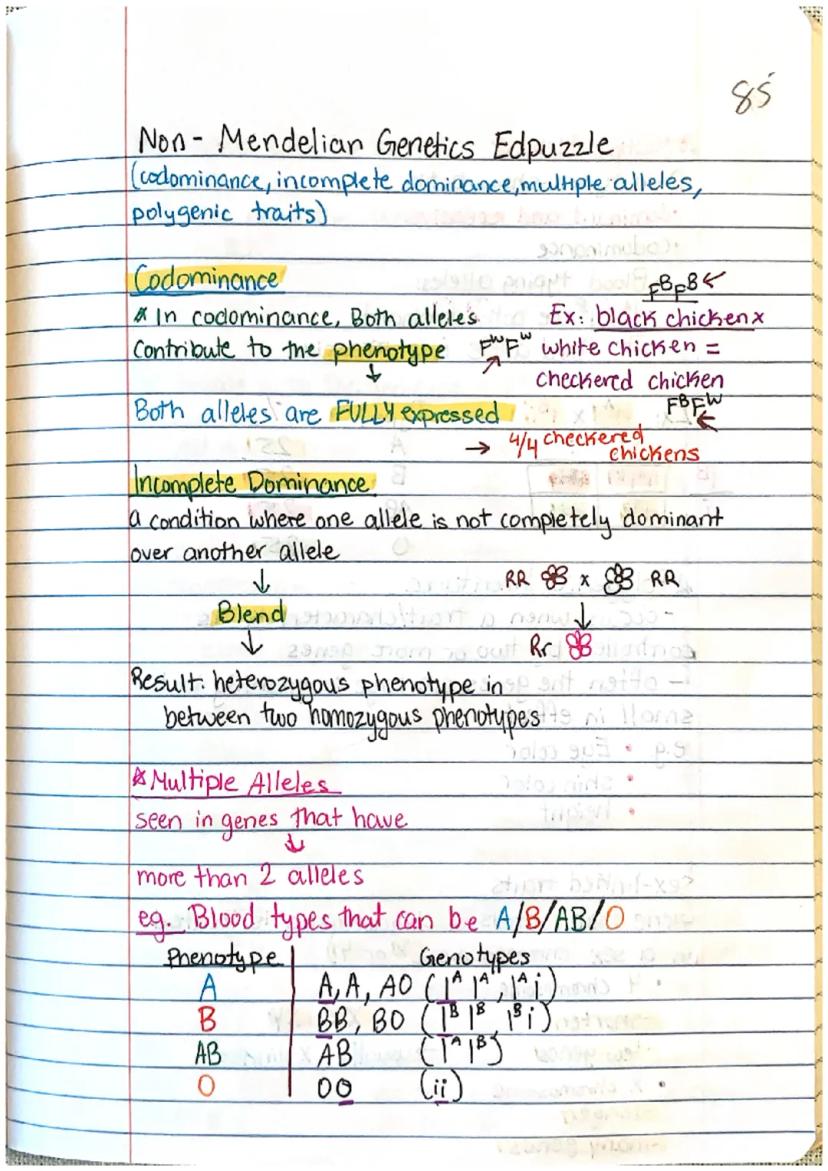 85
Non- Mendelian Genetics Edpuzzle
(codominance, incomplete dominance, multiple alleles,
polygenic traits)
Codominance
F^B F^B ←
* In codominance, Both alleles
Ex: black chicken x
Contribute to the phenotype
F^W F^W white chicken =
↓
checkered chicken
Both alleles are FULLY expressed
F^B F^W
→ 4/4 checkered
chickens
Incomplete Dominance
a condition where one allele is not completely dominant
over another allele
↓
RR x RR
Blend
↓
↓
Rr
Result: heterozygous phenotype in
between two homozygous phenotypes
* Multiple Alleles
seen in genes that have
↓
more than 2 alleles
eg. Blood types that can be A/B/AB/O
Phenotype | Genotypes
A | A,A, AO (I^A I^A, I^A i)
B | BB, BO (I^B I^B I^B i)
AB | AB (I^A I^B)
O | OO (ii)